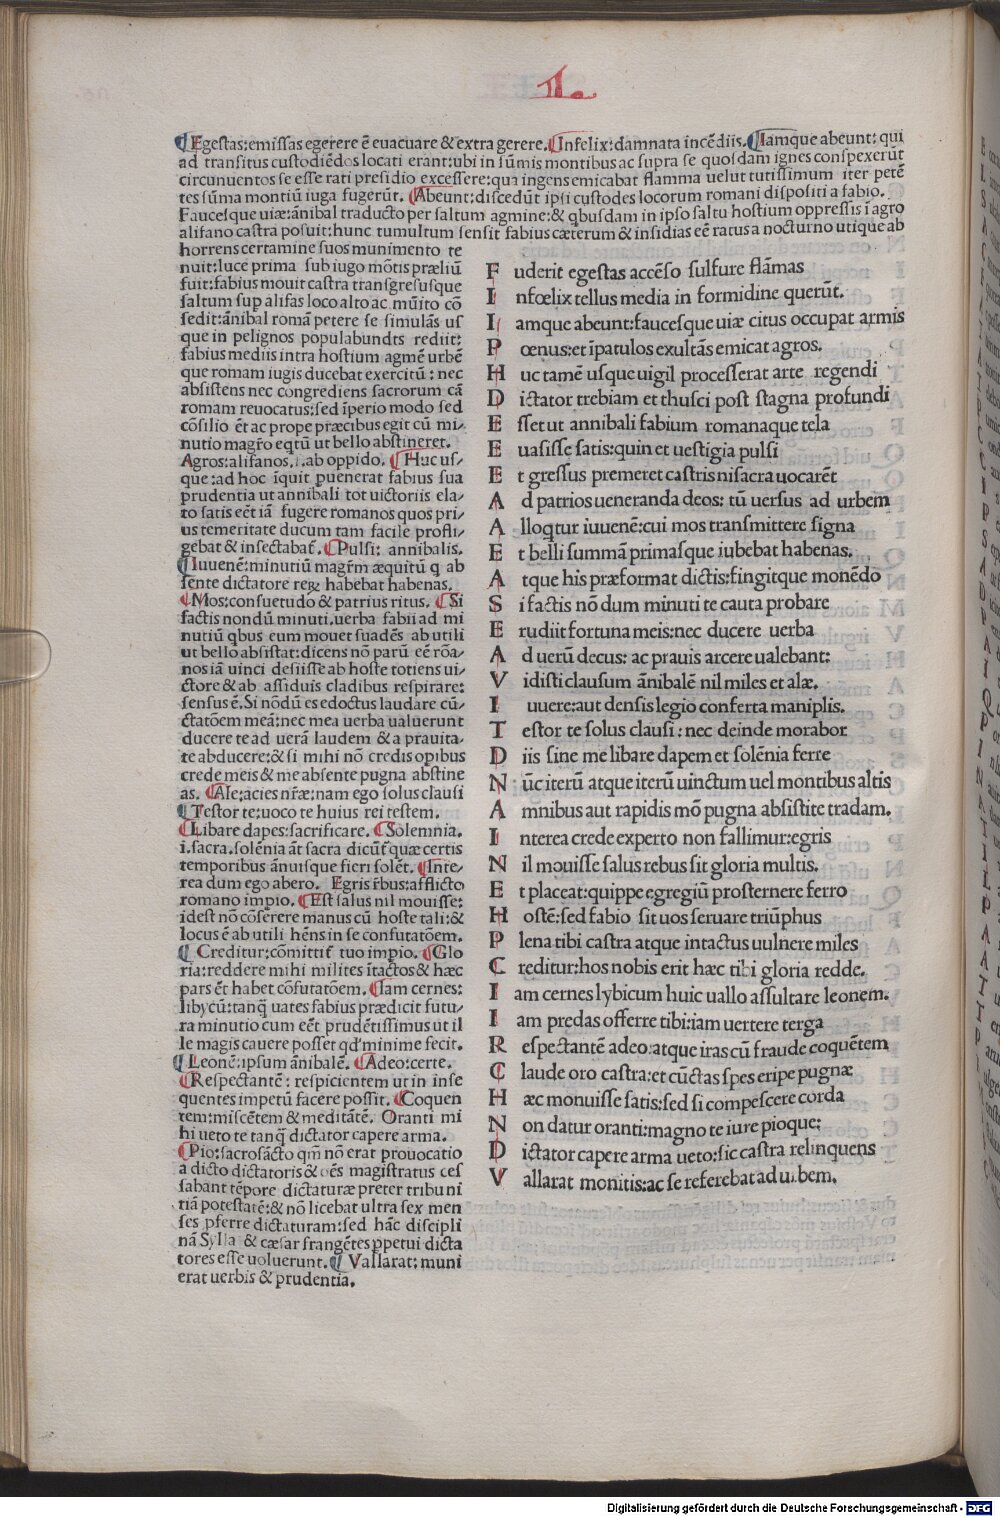 L.
¶Egeſtas:emiſſas egerere ē euacuare & extra gerere.¶Infelix:damnata incēdiis.¶Iamque abeunt: qui
ad tranſitus cuſtodiēdos locati erant:ubi in ſūmis montibus ac ſupra ſe quoſdam ignes conſpexerūt
circunuentos ſe eſſe rati preſidio exceſſere:qua ingens emicabat flamma uelut tutiſſimum iter petē
tes ſūma montiū iuga fugerūt. ¶Abeunt:diſcedūt ipſi cuſtodes locorum romani diſpoſiti a fabio.
Fauceſque uiæ:ānibal traducto per ſaltum agmine:& qbuſdam in ipſo ſaltu hoſtium oppreſſis ī agro
alifano caſtra poſuit:hunc tumultum ſenſit fabius cæterum & inſidias eē ratus a nocturno utique ab
horrens certamine ſuos munimento te
nuit:luce prima ſub iugo mōtis præliū
fuit:fabius mouit caſtra tranſgreſuſque
ſaltum ſup alifas loco alto ac mūito cō
ſedit:ānibal romā petere ſe ſimulās uſ
que in pelignos populabundts rediit:
fabius mediis intra hoſtium agmē urbē
que romam iugis ducebat exercitū : nec
abſiſtens nec congrediens ſacrorum cā
romam reuocatus:ſed īperio modo ſed
cōſilio ēt ac prope præcibus egit cū mi-
nutio magr̄o eqtū ut bello abſtineret.
Agros:alifanos.i.ab oppido. ¶Huc uſ/
que:ad hoc īquit puenerat fabius ſua
prudentia ut annibali tot uictoriis ela/
to ſatis eēt iā fugere romanos quos pri/
us temeritate ducum tam facile profli/
gebat & inſectabat̄. ¶Pulſi: annibalis.
¶Iuuenē:minutiū magr̄m æquitū q ab
ſente dictatore reg habebat habenas.
¶Mos:conſuetudo & patrius ritus. ¶Si
factis nondū minuti.uerba fabii ad mi
nutiū qbus eum mouet ſuadēs ab utili
ut bello abſiſtat:dicens nō parū eē rōa/
nos iā uinci deſiiſſe ab hoſte totiens ui/
ctore & ab aſſiduis cladibus reſpirare:
ſenſus ē.Si nōdū es edoctus laudare cū/
ctatōem meā:nec mea uerba ualuerunt
ducere te ad uerā laudem & a prauita/
te abducere:& ſi mihi nō credis opibus
crede meis & me abſente pugna abſtine
as. ¶Ale:acies nr̄æ:nam ego ſolus clauſi
¶Teſtor te:uoco te huius rei teſtem.
¶Libare dapes:ſacrificare. ¶Solemnia.
i.ſacra.ſolēnia āt ſacra dicūt̄ quæ certis
temporibus ānuiſque fieri ſolēt. ¶Inte/
rea dum ego abero. Egris r̄bus:afflicto
romano impio. ¶Eſt ſalus nil mouiſſe:
ideſt nō cōſerere manus cū hoſte tali:&
locus ē ab utili hēns in ſe confutatōem.
¶ Creditur:cōmittit̄ tuo impio. ¶Glo
ria:reddere mihi milites ītactos & hæc
pars ēt habet cōfutatōem. ¶Iam cernes:
libycū:tanq̄ uates fabius prædicit futu/
ra minutio cum eēt prudētiſſimus ut il
le magis cauere poſſet qd minime fecit.
¶ Leonē:ipſum ānibalē. ¶Adeo:certe.
¶Reſpectantē: reſpicientem ut in inſe
quentes impetū facere poſſit. ¶Coquen
tem:miſcētem & meditātē. Oranti mi
hi ueto te tanq̄ dictator capere arma.
¶Pio:ſacroſācto qm̄ nō erat prouocatio
a dicto dictatoris & oēs magiſtratus ceſ
ſabant tēpore dictaturæ preter tribuni
tiā poteſtatē:& nō licebat ultra ſex men
ſes pferre dictaturam:ſed hāc diſcipli
nā Sylla & cæſar frangētes ppetui dicta
tores eſſe uoluerunt. ¶ Vallarat: muni
erat uerbis & prudentia.
F uderit egeſtas accēſo ſulfure flāmas
I nfœlix tellus media in formidine querūt.
I amque abeunt:fauceſque uiæ citus occupat armis
P œnus:et īpatulos exultās emicat agros.
H uc tamē uſque uigil proceſſerat arte regendi
D ictator trebiam et thuſci poſt ſtagna profundi
E ſſet ut annibali fabium romanaque tela
E uaſiſſe ſatis:quin et ueſtigia pulſi
E t greſſus premeret caſtris niſacra uocarēt
A d patrios ueneranda deos: tū uerſus ad urbem
A lloqtur iuuenē:cui mos tranſmittere ſigna
E t belli ſummā primaſque iubebat habenas.
A tque his præformat dictis:fingitque monēdo
S i factis nō dum minuti te cauta probare
E rudiit fortuna meis:nec ducere uerba
A d uerū decus: ac prauis arcere ualebant:
V idiſti clauſum ānibalē nil miles et alæ.
I uuere:aut denſis legio conferta maniplis.
T eſtor te ſolus clauſi : nec deinde morabor
D iis ſine me libare dapem et ſolēnia ferre
N ūc iterū atque iterū uinctum uel montibus altis
A mnibus aut rapidis mō pugna abſiſtite tradam.
I nterea crede experto non fallimur:egris
N il mouiſſe ſalus rebus ſit gloria multis.
E t placeat:quippe egregiū proſternere ferro
H oſtē:ſed fabio ſit uos ſeruare triūphus
P lena tibi caſtra atque intactus uulnere miles
C reditur:hos nobis erit hæc tibi gloria redde.
I am cernes lybicum huic uallo aſſultare leonem.
I am predas offerre tibi:iam uertere terga
R eſpectantē adeo atque iras cū fraude coquētem
C laude oro caſtra:et cūctas ſpes eripe pugnæ
H æc monuiſſe ſatis:ſed ſi compeſcere corda
N on datur oranti:magno te iure pioque:
D ictator capere arma ueto:ſic caſtra relinquens
V allarat monitis:ac ſe referebat ad urbem.
Digitalisierung gefördert durch die Deutsche Forschungsgemeinschaft - DFG